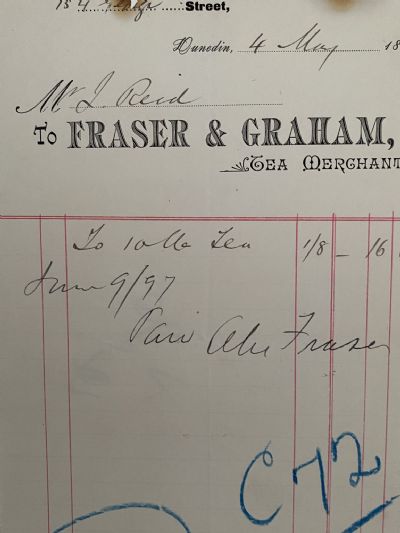 75 4 George Street,
Dunedin, 4 May 18
Mr J. Reid
To FRASER & GRAHAM,
TEA MERCHANT
To 10 lb Tea 1/8 – 16
June 9/97
Paid Alex Fraser
C 72